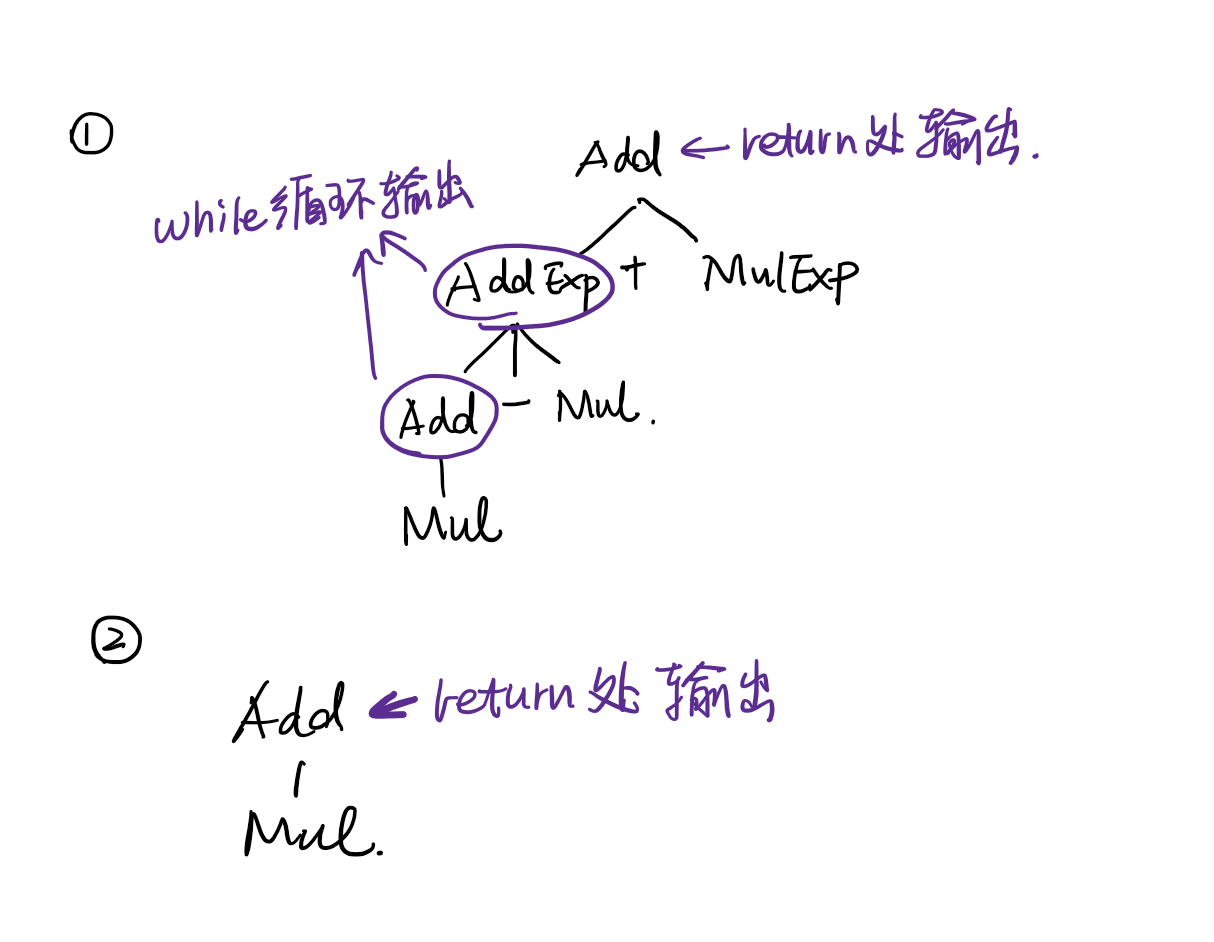 ①
Add ← return处输出.
while循环输出
AddExp + MulExp
Add - Mul.
Mul
②
Add ← return处输出
Mul.